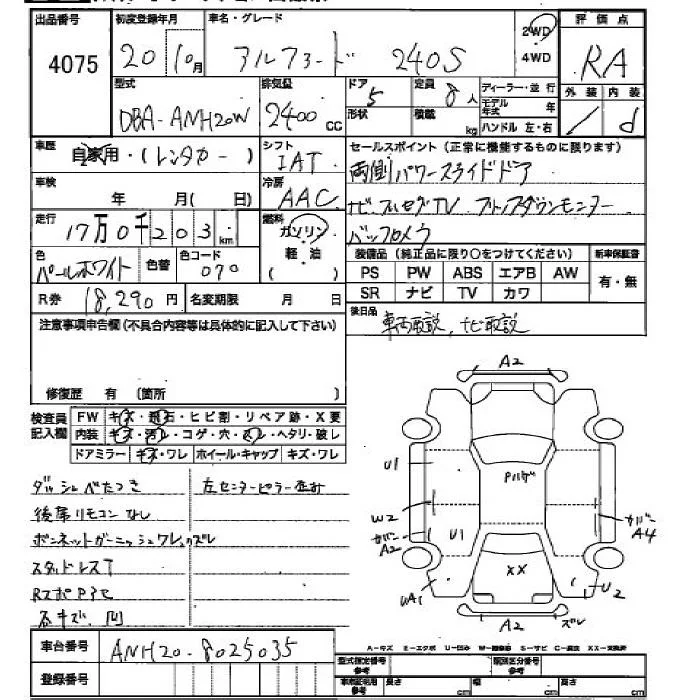 出品番号 初度登録年月 車名・グレード 2WD 評価点
4075 20 10月 アルファード 240S 4WD RA
型式 排気量 ドア 定員 ディーラー・並行 外装 内装
DBA-ANH20W 2400cc 5 8人 モデル年式 年 / d
形状 積載 kg ハンドル 左・右
車歴 自家用・(レンタカー) シフト IAT セールスポイント(正常に機能するものに限ります)
両側パワースライドドア
車検 年 月(日) 冷房 AAC
ナビ・フルセグTV フリップダウンモニター
走行 17万0千203km 燃料 ガソリン 軽油 ( )
バックカメラ
色 パールホワイト 色替 色コード 070
装備品(純正品に限り○をつけてください) 新車保証書
PS PW ABS エアB AW 有・無
SR ナビ TV カワ
R券 18,290円 名変期限 月 日
後日品 車両取説、ナビ取説
注意事項申告欄(不具合内容等は具体的に記入して下さい)
修復歴 有 [箇所 ]
検査員記入欄 FW キズ・飛石・ヒビ割・リペア跡・X要
内装 キズ・汚レ・コゲ・穴・スレ・ヘタリ・破レ
ドアミラー キズ・ワレ ホイール・キャップ キズ・ワレ
ダッシュベたつき 左センターピラー
後席リモコンなし
ボンネットガーニッシュワレ ズレ
スタッドレスT
RスポPﾘモ
A2
U1 Pハゲ
W2 U1 カバーA2 カバーA4
XX
WA1 U2
A2 ズレ
A-キズ E-エクボ U-凹み W-補修跡 S-サビ C-腐食 XX-交換済
車台番号 ANH20-8025035
登録番号
型式指定番号 参考 類別区分番号 参考
車庫証明用 参考 長さ cm 幅 cm 高さ cm